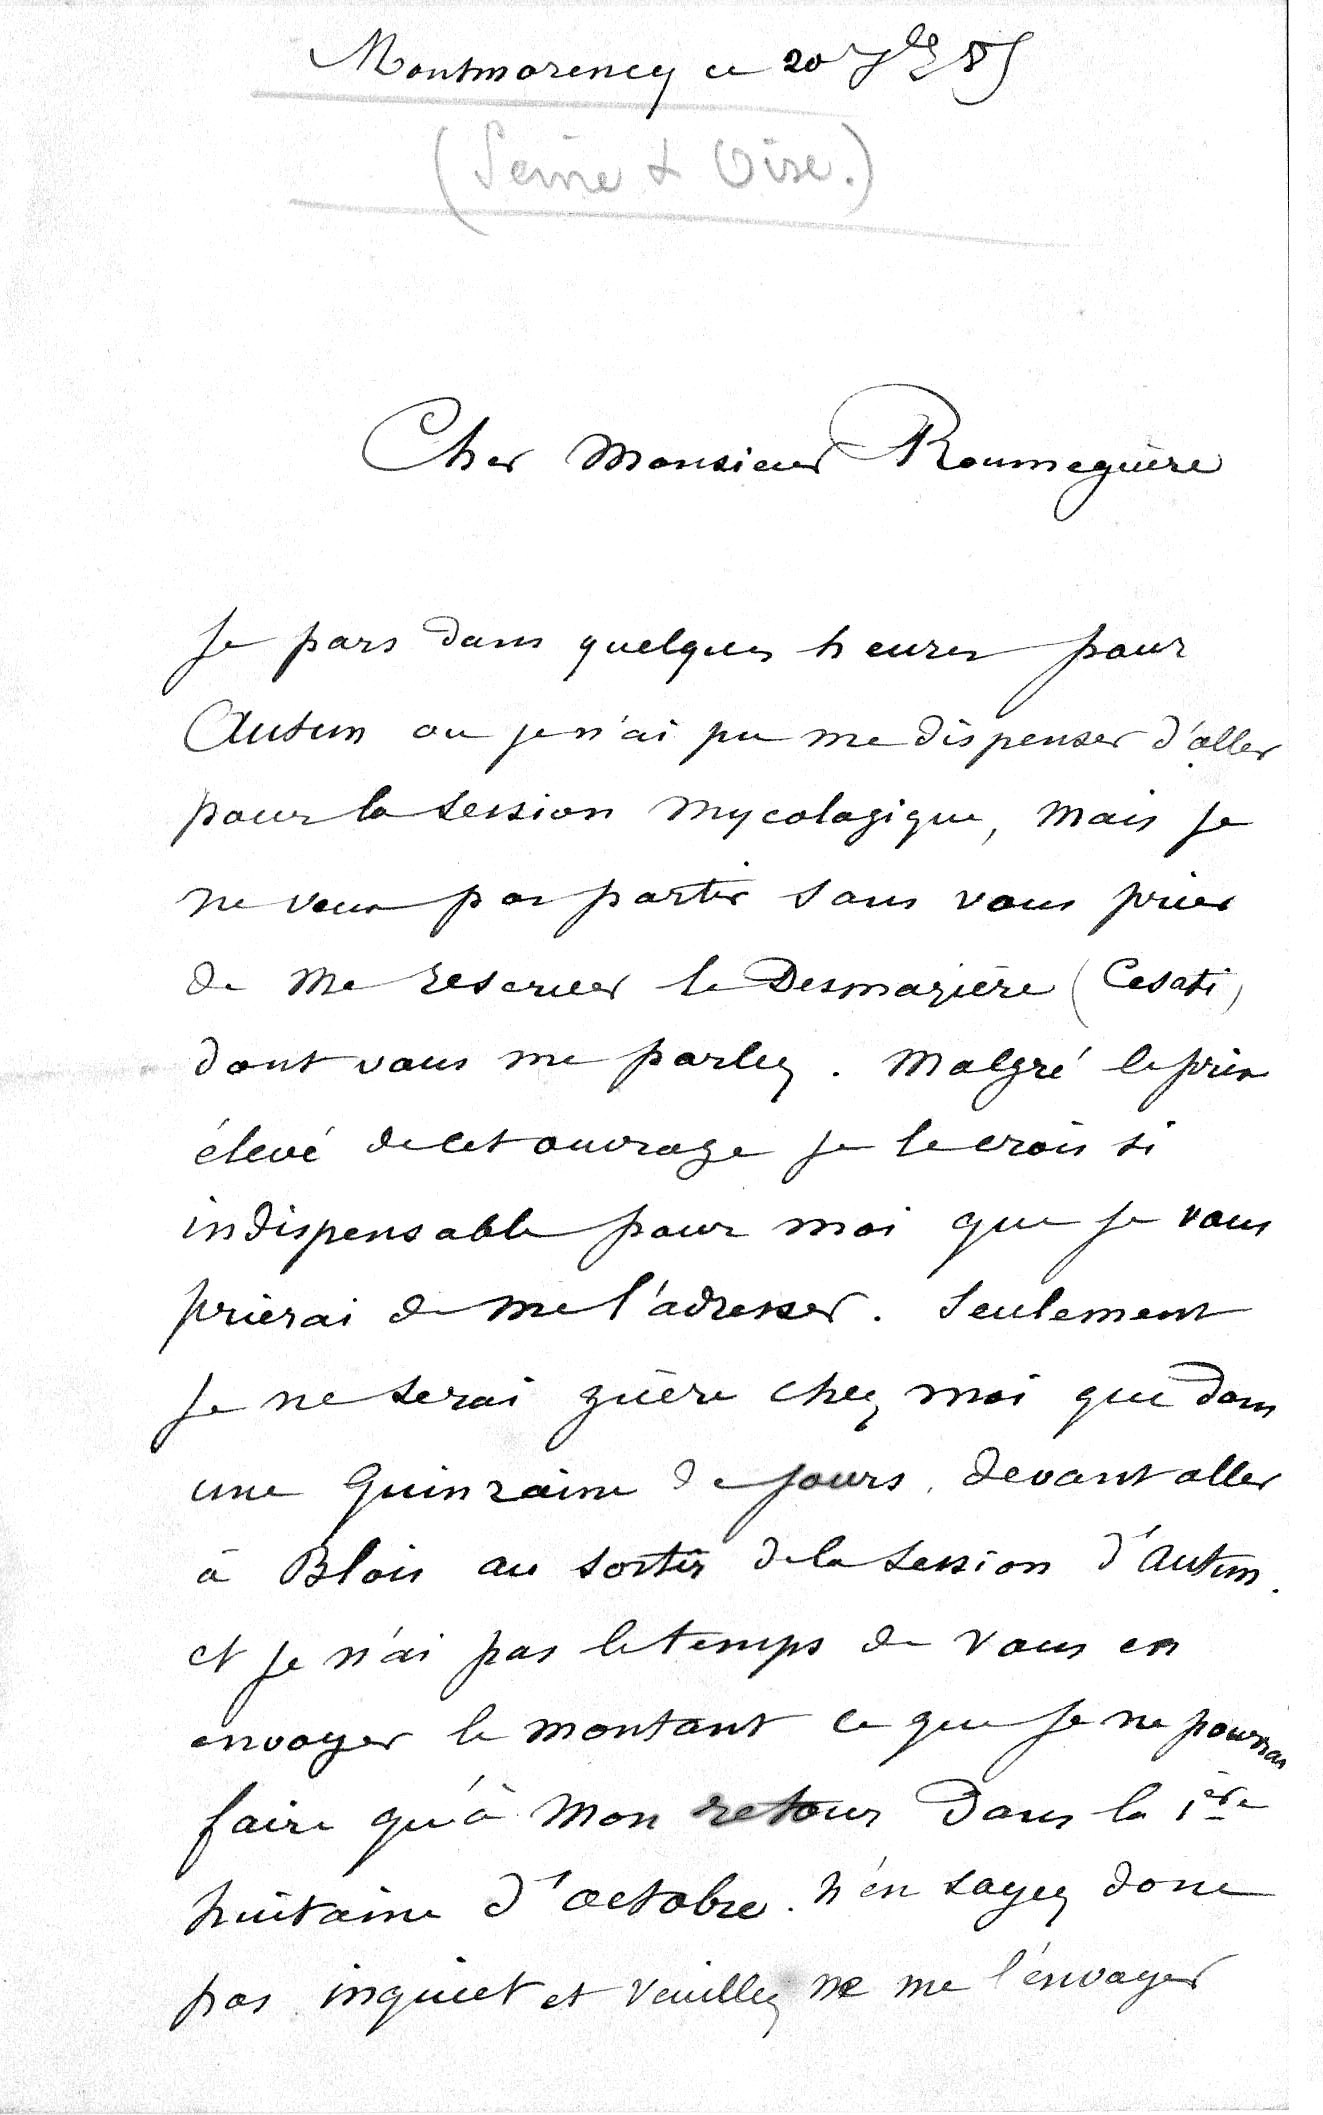 Montmorency ce 20 7bre 85
(Seine & Oise.)
Cher Monsieur Roumeguère
Je pars dans quelques heures pour
Autun ou je n'ai pu me dispenser d'aller
pour la session mycologique, mais je
ne veux pas partir sans vous prier
de me reserver le Desmazière (Cesati)
dont vous me parlez. Malgré le prix
élevé de cet ouvrage je le crois si
indispensable pour moi que je vous
prierai de me l'adresser. Seulement
je ne serai guère chez moi que dans
une quinzaine de jours, devant aller
à Blois au sortir de la session d'Autun.
et je n'ai pas le temps de vous en
envoyer le montant ce que je ne pourrai
faire qu'à mon retour dans la 1ère
huitaine d'octobre. N'en soyez donc
pas inquiet et veuillez ne me l'envoyer